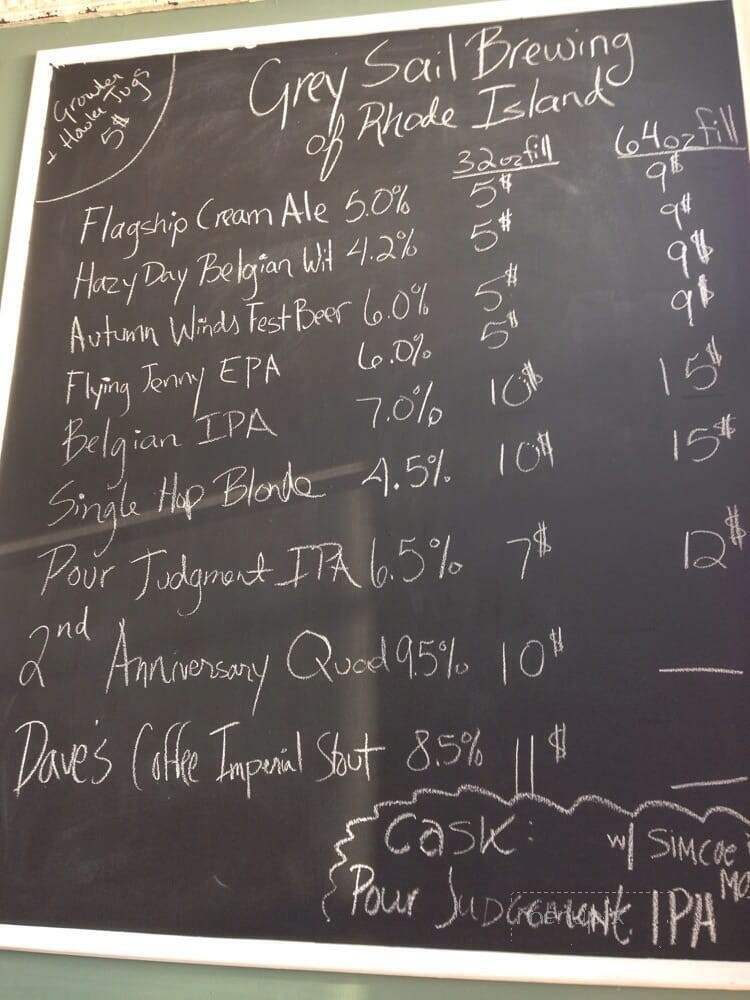 Growler
+ Howler Jugs
5$
Grey Sail Brewing
of Rhode Island
32oz fill 64oz fill
Flagship Cream Ale 5.0% 5$ 9$
Hazy Day Belgian Wit 4.2% 5$ 9$
Autumn Winds Fest Beer 6.0% 5$ 9$
Flying Jenny EPA 6.0% 5$ 9$
Belgian IPA 7.0% 10$ 15$
Single Hop Blonde 4.5% 10$ 15$
Pour Judgment IPA 6.5% 7$ 12$
2nd Anniversary Quad 9.5% 10$ —
Dave's Coffee Imperial Stout 8.5% 11$ —
Cask: w/ SIMCOE
Pour Judgement IPA